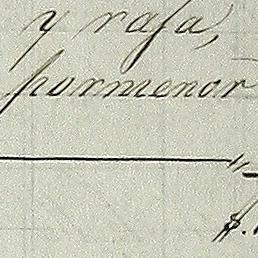 y rasa,
pormenor
"
$.